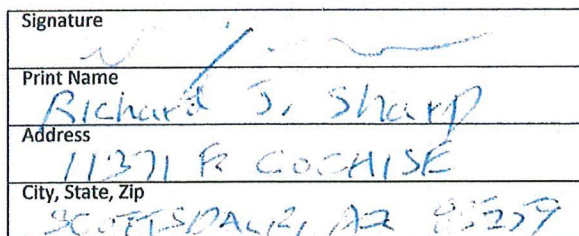 Signature
Print Name
Richard J. Sharp
Address
11371 E COCHISE
City, State, Zip
SCOTTSDALE, AZ 85259